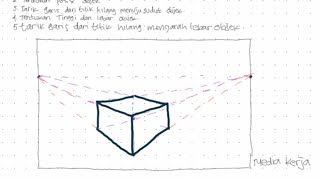 3. Tarik garis dari titik hilang menuju sudut objek.
4. Tentukan Tinggi dan lebar objek.
5. tarik garis dari titik hilang mengarah lebar objek.
Media kerja